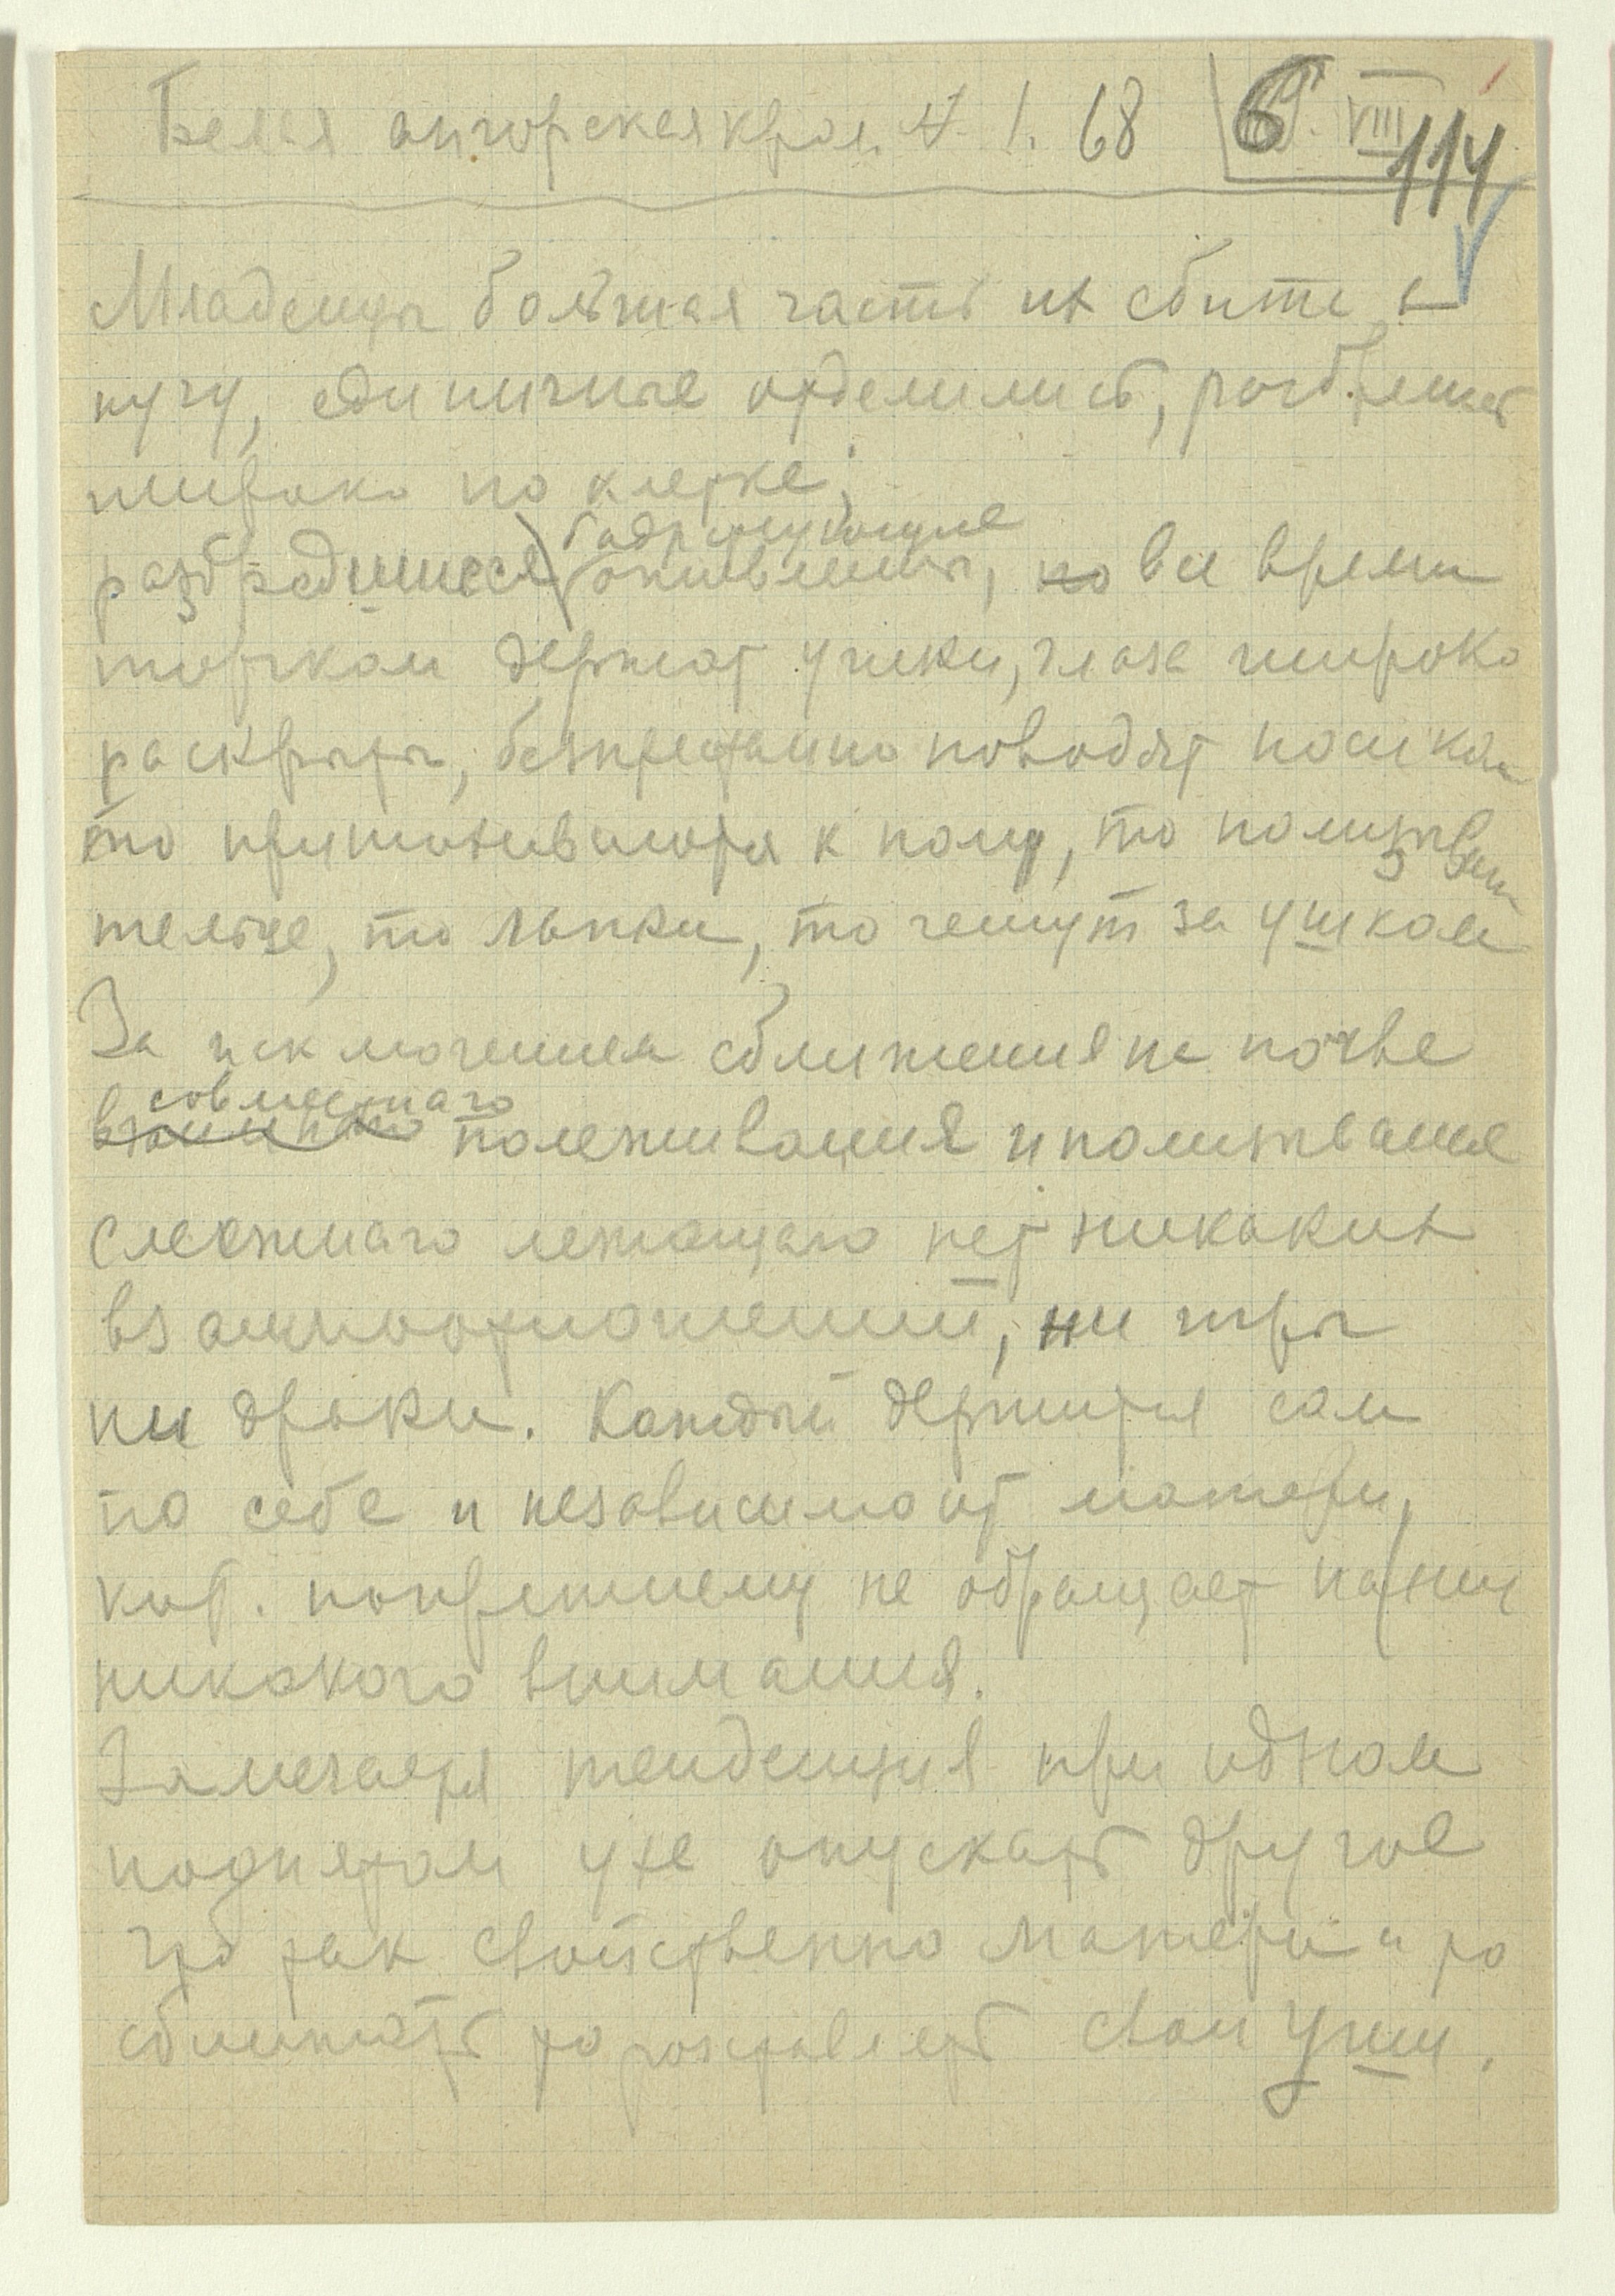 Белая ангорская крол. N. 1. 68 6 VIII
114
Младенцы большая часть их сбита в
кучу, единичные отделились, разбрелись
широко по клетке;
бодрствующие
разбредшиеся оживлены, но все время
торчком держат ушки, глаза широко
раскрыты, безпрестанно поводят носиком
то принюхиваются к полу, то полизывают
тельце, то лапки, то чешут за ушком
За исключением сближения на почве
совместнаго
взаимного полеживания и полизывания
смежнаго лежащаго нет никаких
взаимоотношений, ни игры
ни драки. Каждый держится сам
по себе и независимо от матери,
кот. попрежнему не обращает на них
никакого внимания.
Замечается тенденция при одном
поднятом ухе опускать другое
что так свойственно матери и то
сближать то розставлять свои уши.